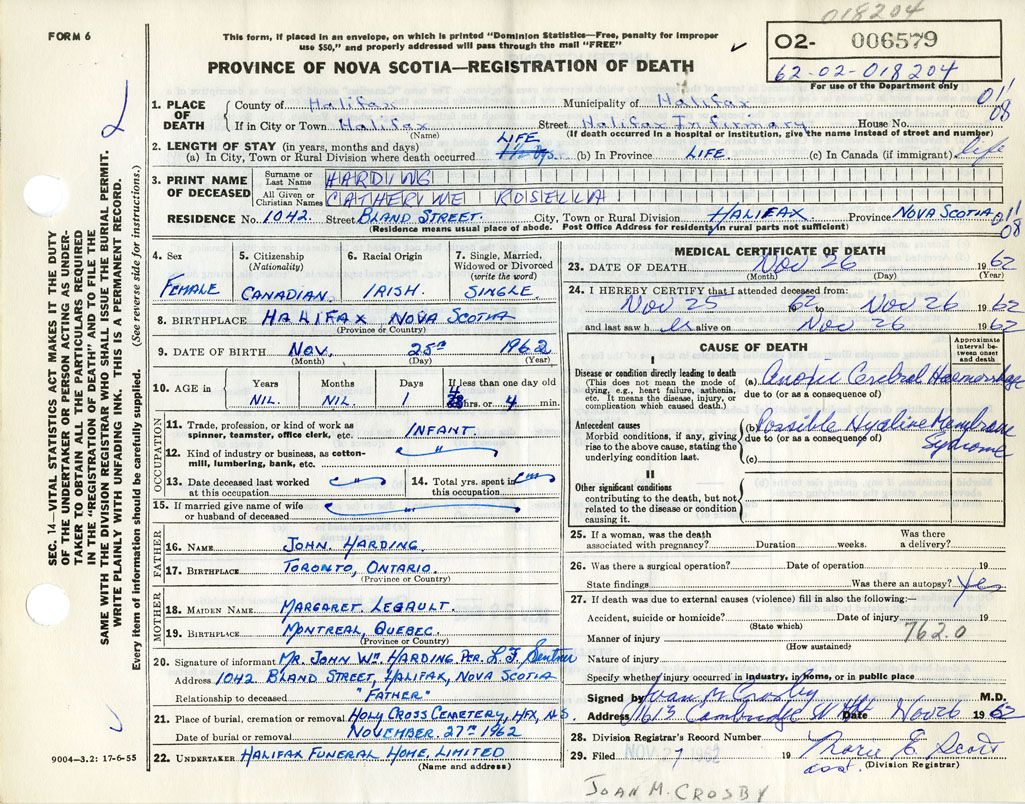 018204
FORM 6
This form, if placed in an envelope, on which is printed "Dominion Statistics—Free, penalty for improper
use $50," and properly addressed will pass through the mail "FREE"
O2- 006579
62-02-018204
For use of the Department only
PROVINCE OF NOVA SCOTIA—REGISTRATION OF DEATH
SEC. 14—VITAL STATISTICS ACT MAKES IT THE DUTY
OF THE UNDERTAKER OR PERSON ACTING AS UNDER-
TAKER TO OBTAIN ALL THE PARTICULARS REQUIRED
IN THE "REGISTRATION OF DEATH" AND TO FILE THE
SAME WITH THE DIVISION REGISTRAR WHO SHALL ISSUE THE BURIAL PERMIT.
WRITE PLAINLY WITH UNFADING INK. THIS IS A PERMANENT RECORD.
Every item of information should be carefully supplied. (See reverse side for instructions.)
1. PLACE OF DEATH
County of Halifax Municipality of Halifax
If in City or Town Halifax Street Halifax Infirmary House No.
(Name) (If death occurred in hospital or institution, give the name instead of street and number)
01/08
2. LENGTH OF STAY (in years, months and days)
(a) In City, Town or Rural Division where death occurred LIFE (b) In Province LIFE. (c) In Canada (if immigrant) life
3. PRINT NAME OF DECEASED
Surname or Last Name HARDING
All Given or Christian Names CATHERINE ROSELLA
RESIDENCE No. 1042. Street BLAND STREET. City, Town or Rural Division HALIFAX Province NOVA SCOTIA
01/08
(Residence means usual place of abode. Post Office Address for residents in rural parts not sufficient)
4. Sex
FEMALE
5. Citizenship
(Nationality)
CANADIAN.
6. Racial Origin
IRISH.
7. Single, Married,
Widowed or Divorced
(write the word)
SINGLE.
8. BIRTHPLACE HALIFAX NOVA SCOTIA
(Province or Country)
9. DATE OF BIRTH NOV. 25th 1962
(Month) (Day) (Year)
10. AGE in Years Months Days If less than one day old
NIL. NIL. 1 4 hrs. or 4 min.
OCCUPATION
11. Trade, profession, or kind of work as
spinner, teamster, office clerk, etc. INFANT.
12. Kind of industry or business, as cotton-
mill, lumbering, bank, etc. "
13. Date deceased last worked
at this occupation "
14. Total yrs. spent in
this occupation "
15. If married give name of wife
or husband of deceased
FATHER
16. NAME JOHN. HARDING.
17. BIRTHPLACE TORONTO, ONTARIO.
(Province or Country)
MOTHER
18. MAIDEN NAME MARGARET LEGAULT.
19. BIRTHPLACE MONTREAL, QUEBEC.
(Province or Country)
20. Signature of informant MR. JOHN WM HARDING PER. L.F. Sentner
Address 1042 BLAND STREET, HALIFAX, NOVA SCOTIA
Relationship to deceased "FATHER"
21. Place of burial, cremation or removal HOLY CROSS CEMETERY, HFX, N.S.
Date of burial or removal NOVEMBER. 27th 1962
22. UNDERTAKER HALIFAX FUNERAL HOME LIMITED
(Name and address)
9004—3.2: 17-6-55
MEDICAL CERTIFICATE OF DEATH
23. DATE OF DEATH Nov 26 1962
(Month) (Day) (Year)
24. I HEREBY CERTIFY that I attended deceased from:
Nov 25 62 to Nov 26 1962
and last saw h er alive on Nov 26 1962
CAUSE OF DEATH
Approximate
interval be-
tween onset
and death
I
Disease or condition directly leading to death
(This does not mean the mode of
dying, e.g., heart failure, asthenia,
etc. It means the disease, injury, or
complication which caused death.)
(a) Anoxic Cerebral Haemorrhage
due to (or as a consequence of)
Antecedent causes
Morbid conditions, if any, giving
rise to the above cause, stating the
underlying condition last.
(b) Possible Hyaline Membrane
due to (or as a consequence of) Syndrome
(c)
II
Other significant conditions
contributing to the death, but not
related to the disease or condition
causing it.
25. If a woman, was the death
associated with pregnancy? Duration weeks. Was there
a delivery?
26. Was there a surgical operation? Date of operation 19
State findings Was there an autopsy? Yes
27. If death was due to external causes (violence) fill in also the following:—
Accident, suicide or homicide? Date of injury 19
(State which)
762.0
Manner of injury
(How sustained)
Nature of injury
Specify whether injury occurred in industry, in home, or in public place
Signed by Joan M Crosby M.D.
Address 1613 Cambridge Date Nov 26 1962
28. Division Registrar's Record Number
29. Filed NOV 27 1962 19 Marie E. Scott
(Division Registrar)
JOAN M. CROSBY